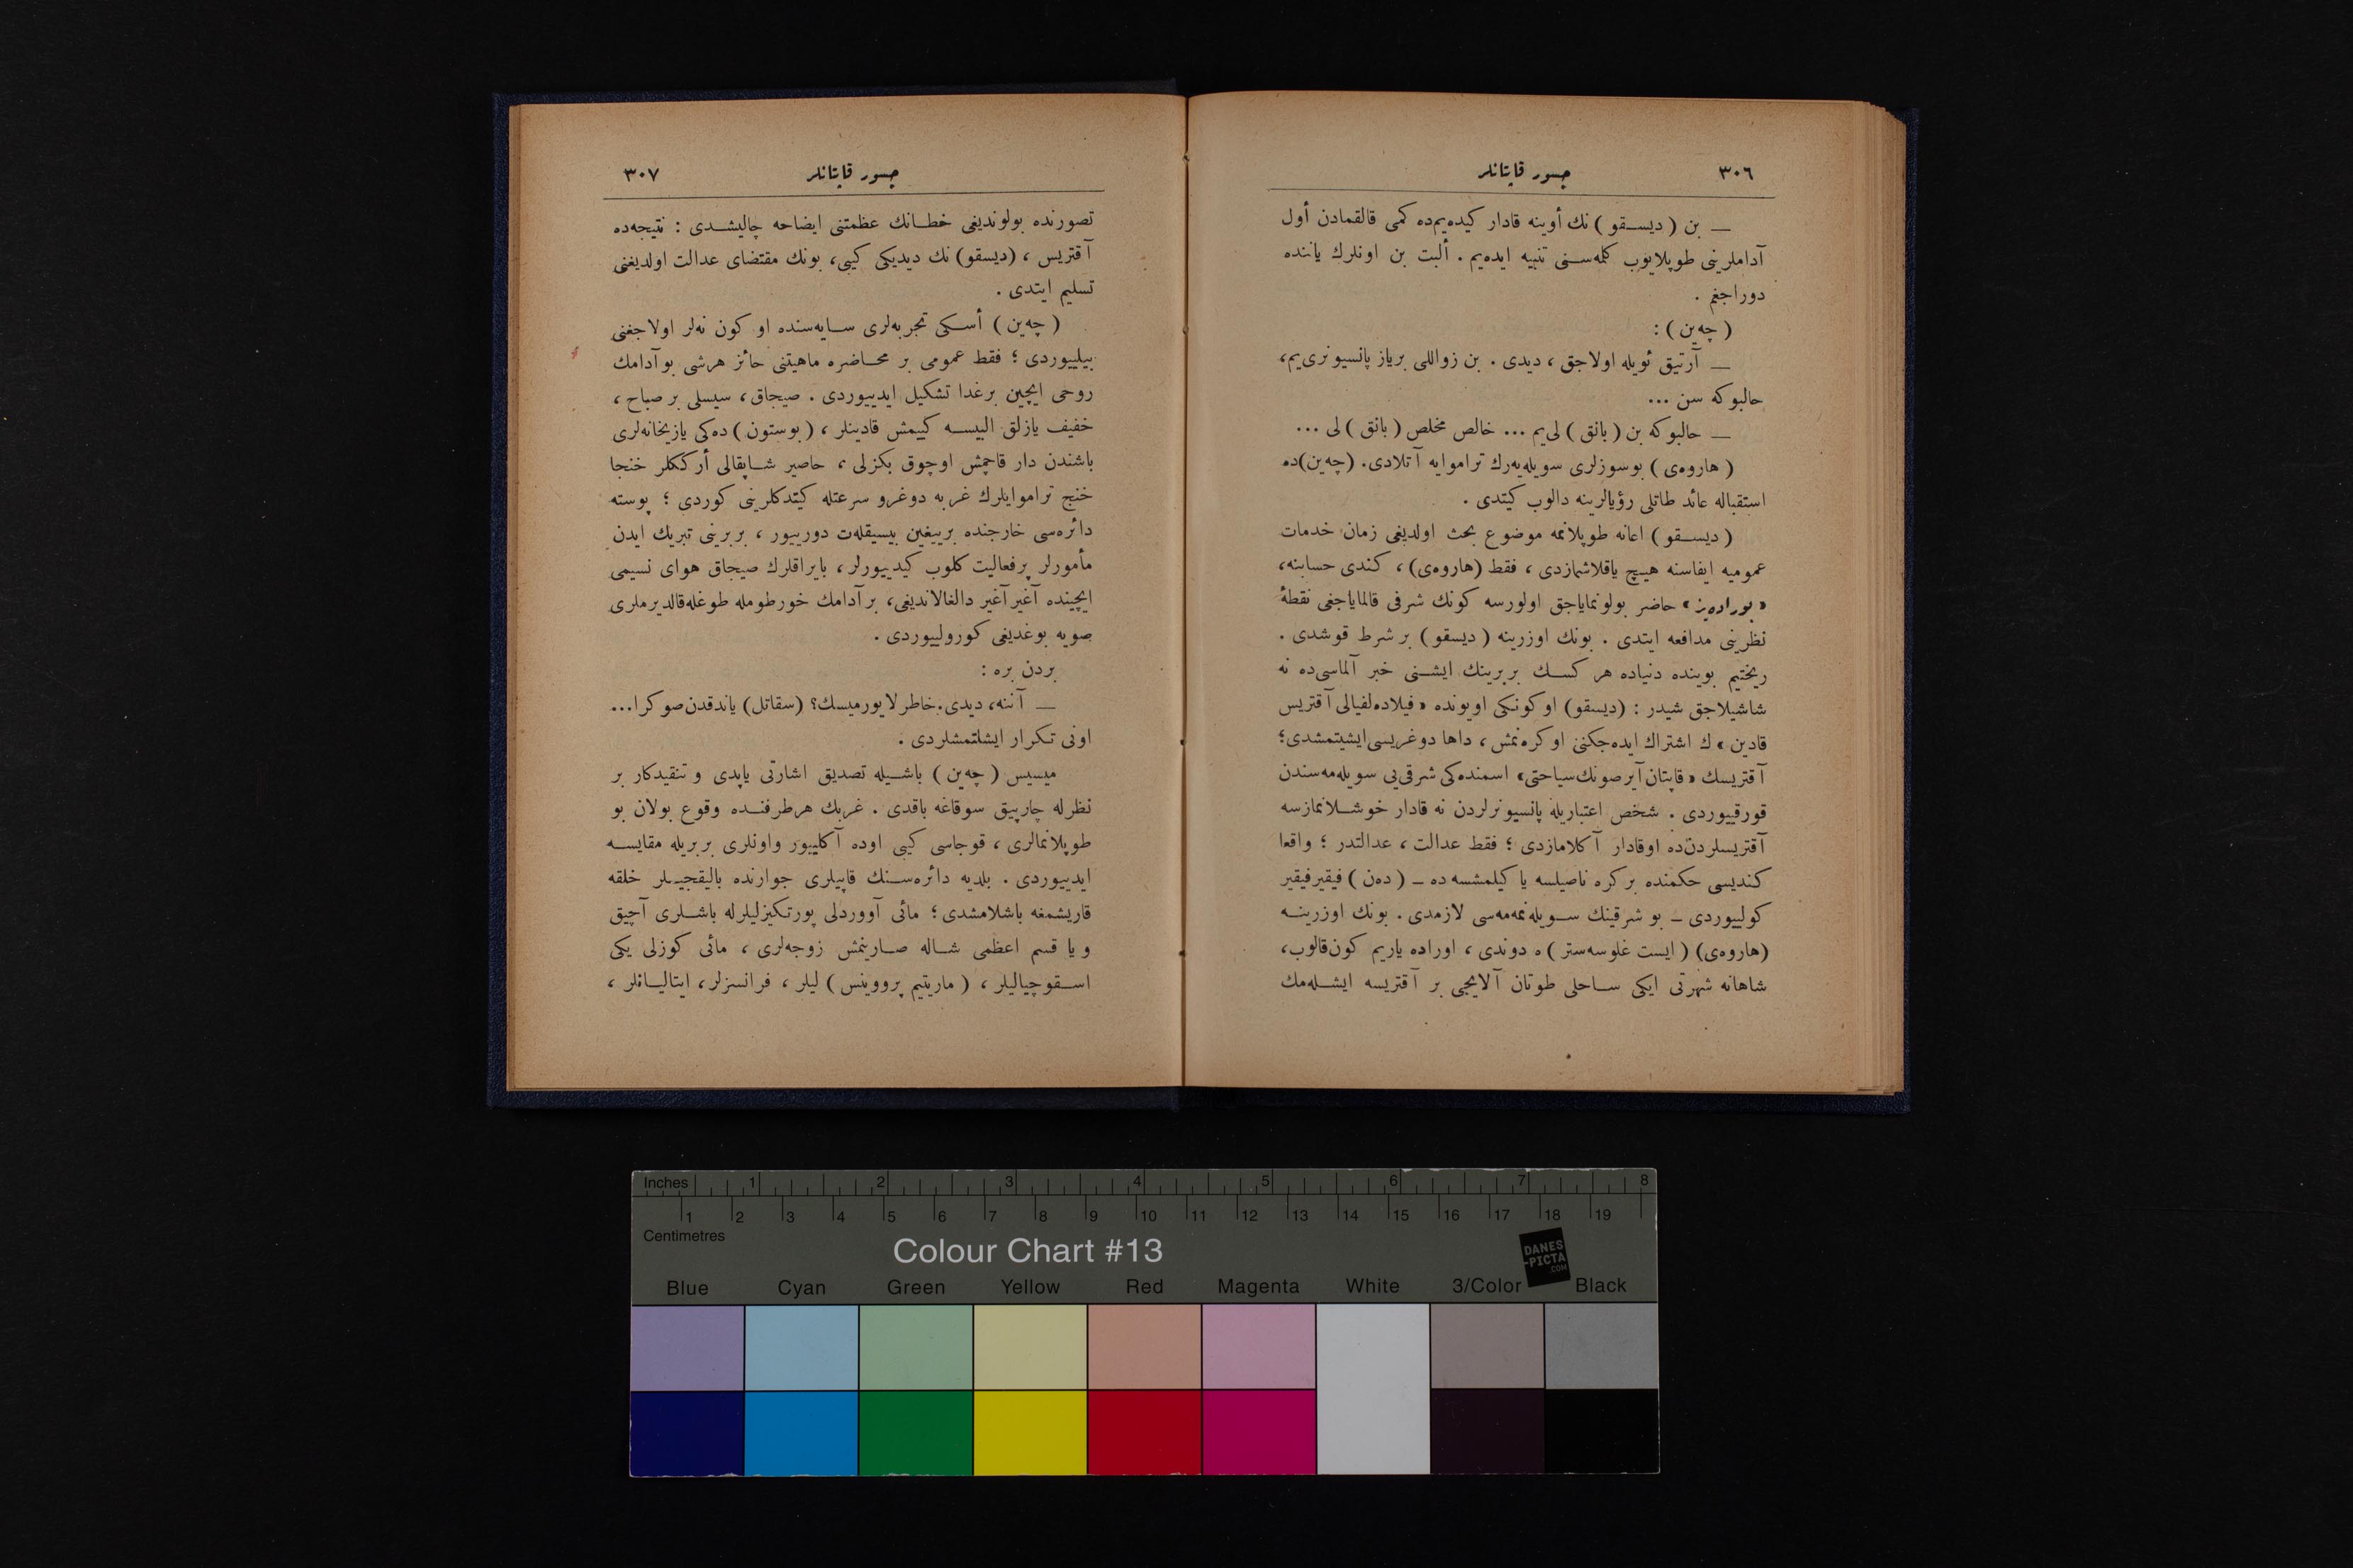 ٣٠٦
جسور قاپتانلر
— بن ( ديسـقو ) نك أوينه قادار كيده‌يم‌ده كمى قالقمادن أول
آداملرينى طوپلايوب كلمه‌سـنى تنبيه ايده‌يم . ألبت بن اونلرك ياننده
دوراجغم .
( چه‌ين ) :
— آرتيق ئويله اولاجق ، ديدى . بن زواللى برياز پانسيونرى‌يم،
حالبوكه سن ...
— حالبوكه بن ( بانق ) لى‌يم ... خالص مخلص ( بانق ) لى ...
( هاروه‌ى ) بوسوزلرى سويله‌يه‌رك تراموايه آتلادى. (چه‌ين)ده
استقباله عائد طاتلى رؤيالرينه دالوب كيتدى .
( ديسـقو ) اعانه طوپلانمه موضوع بحث اولديغى زمان خدمات
عموميه ايفاسنه هيچ ياقلاشمازدى ، فقط (هاروه‌ى) ، كندى حسابنه،
« بوراده‌يز » حاضر بولونماياجق اولورسه كونك شرفى قالماياجغى نقطۀ
نظرينى مدافعه ايتدى . بونك اوزرينه ( ديسقو ) بر شرط قوشدى .
ريختيم بوينده دنياده هر كسـك بربرينك ايشـنى خبر آلماسى‌ده نه
شاشيلاجق شيدر : (ديسقو) اوكونكى اويونده « فيلاده‌لفيالى آقتريس
قادين » ك اشتراك ايده‌جكنى اوكره‌نمش ، داها دوغريسى ايشيتمشدى؛
آقتريسك « قاپتان آيرصونك سياحتى » اسمنده‌كى شرقى‌يى سويله‌مه‌سندن
قورقييوردى . شخص اعتباريله پانسيونرلردن نه قادار خوشـلانمازسه
آقتريسلردن‌ده اوقادار آكلامازدى ؛ فقط عدالت ، عدالتدر ؛ واقعا
كنديسى حكمنده بركره ناصيلسه ياكيلمشسه‌ده ـ ( ده‌ن ) فيقيرفيقير
كولييوردى ـ بو شرقينك سـويله‌نمه‌مه‌سى لازمدى . بونك اوزرينـه
(هاروه‌ى) ( ايست غلوسه‌ستر ) ه دوندى ، اوراده ياريم كون‌قالوب،
شاهانه شهرتى ايكى سـاحلى طوتان آلايجى بر آقتريسه ايشـله‌مك
جسور قاپتانلر
٣٠٧
تصورنده بولونديغى خطـانك عظمتنى ايضاحه چاليشـدى : نتيجه‌ده
آقتريس ، (ديسقو) نك ديديكى كيبى، بونك مقتضاى عدالت اولديغنى
تسليم ايتدى .
( چه‌ين ) أسـكى تجربه‌لرى سـايه‌سنده او كون نه‌لر اولاجغنى
بيلييوردى ؛ فقط عمومى بر محـاضره ماهيتنى حائز هرشى بوآدامك
روحى ايچين برغدا تشكيل ايدييوردى . صيجاق ، سيسلى بر صباح ،
خفيف يازلق البيسـه كييمش قادينلر ، ( بوستون ) ده‌كى يازيخانه‌لرى
باشندن دار قاچمش اوچوق بكزلى ، حاصير شـاپقالى أركككلر خنجا
خنج تراموايلرك غربه دوغرو سرعتله كيتدكلرينى كوردى ؛ پوسته
دائره‌سى خارجنده برييغين بيسيقله‌ت دورييور ، بربرينى تبريك ايدن
مأمورلر پرفعاليت كلوب كيدييورلر ، بايراقلرك صيجاق هواى نسيمى
ايچينده آغير آغير دالغالانديغى، برآدامك خورطومله طوغله‌قالديرملرى
صويه بوغديغى كورولييوردى .
بردن بره :
— آننه، ديدى. خاطرلايورميسك؟ (سقاتل) ياندقدن صوكرا...
اونى تكرار ايشلتمشلردى .
ميسيس ( چه‌ين ) باشـيله تصديق اشارتى ياپدى و تنقيدكار بر
نظرله چارپيق سوقاغه باقدى . غربك هرطرفنـده وقوع بولان بو
طوپلانمالرى ، قوجاسى كيبى اوده آكلييور واونلرى بربريله مقايسـه
ايدييوردى . بلديه دائره‌سـنك قاپيلرى جوارنده باليقجيـلر خلقه
قاريشمغه باشلامشدى ؛ مائى آووردلى پورتكيزليلرله باشـلرى آچيق
و يا قسم اعظمى شـاله صـارينمش زوجه‌لرى ، مائى كوزلى يكى
اسـقوچياليلر ، ( ماريتيم پرووينس ) ليلر ، فرانسزلر، ايتاليـانلر ،
Inches 1 2 3 4 5 6 7 8
1 2 3 4 5 6 7 8 9 10 11 12 13 14 15 16 17 18 19
Centimetres
Colour Chart #13
DANES
-PICTA
.COM
Blue Cyan Green Yellow Red Magenta White 3/Color Black